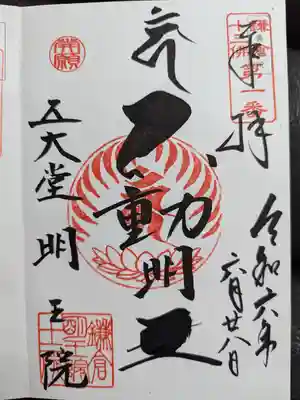 鎌倉
十三佛
第一番
奉拝
令和六年
六月廿八日
不動明王
五大堂 明王院
鎌倉
明王院